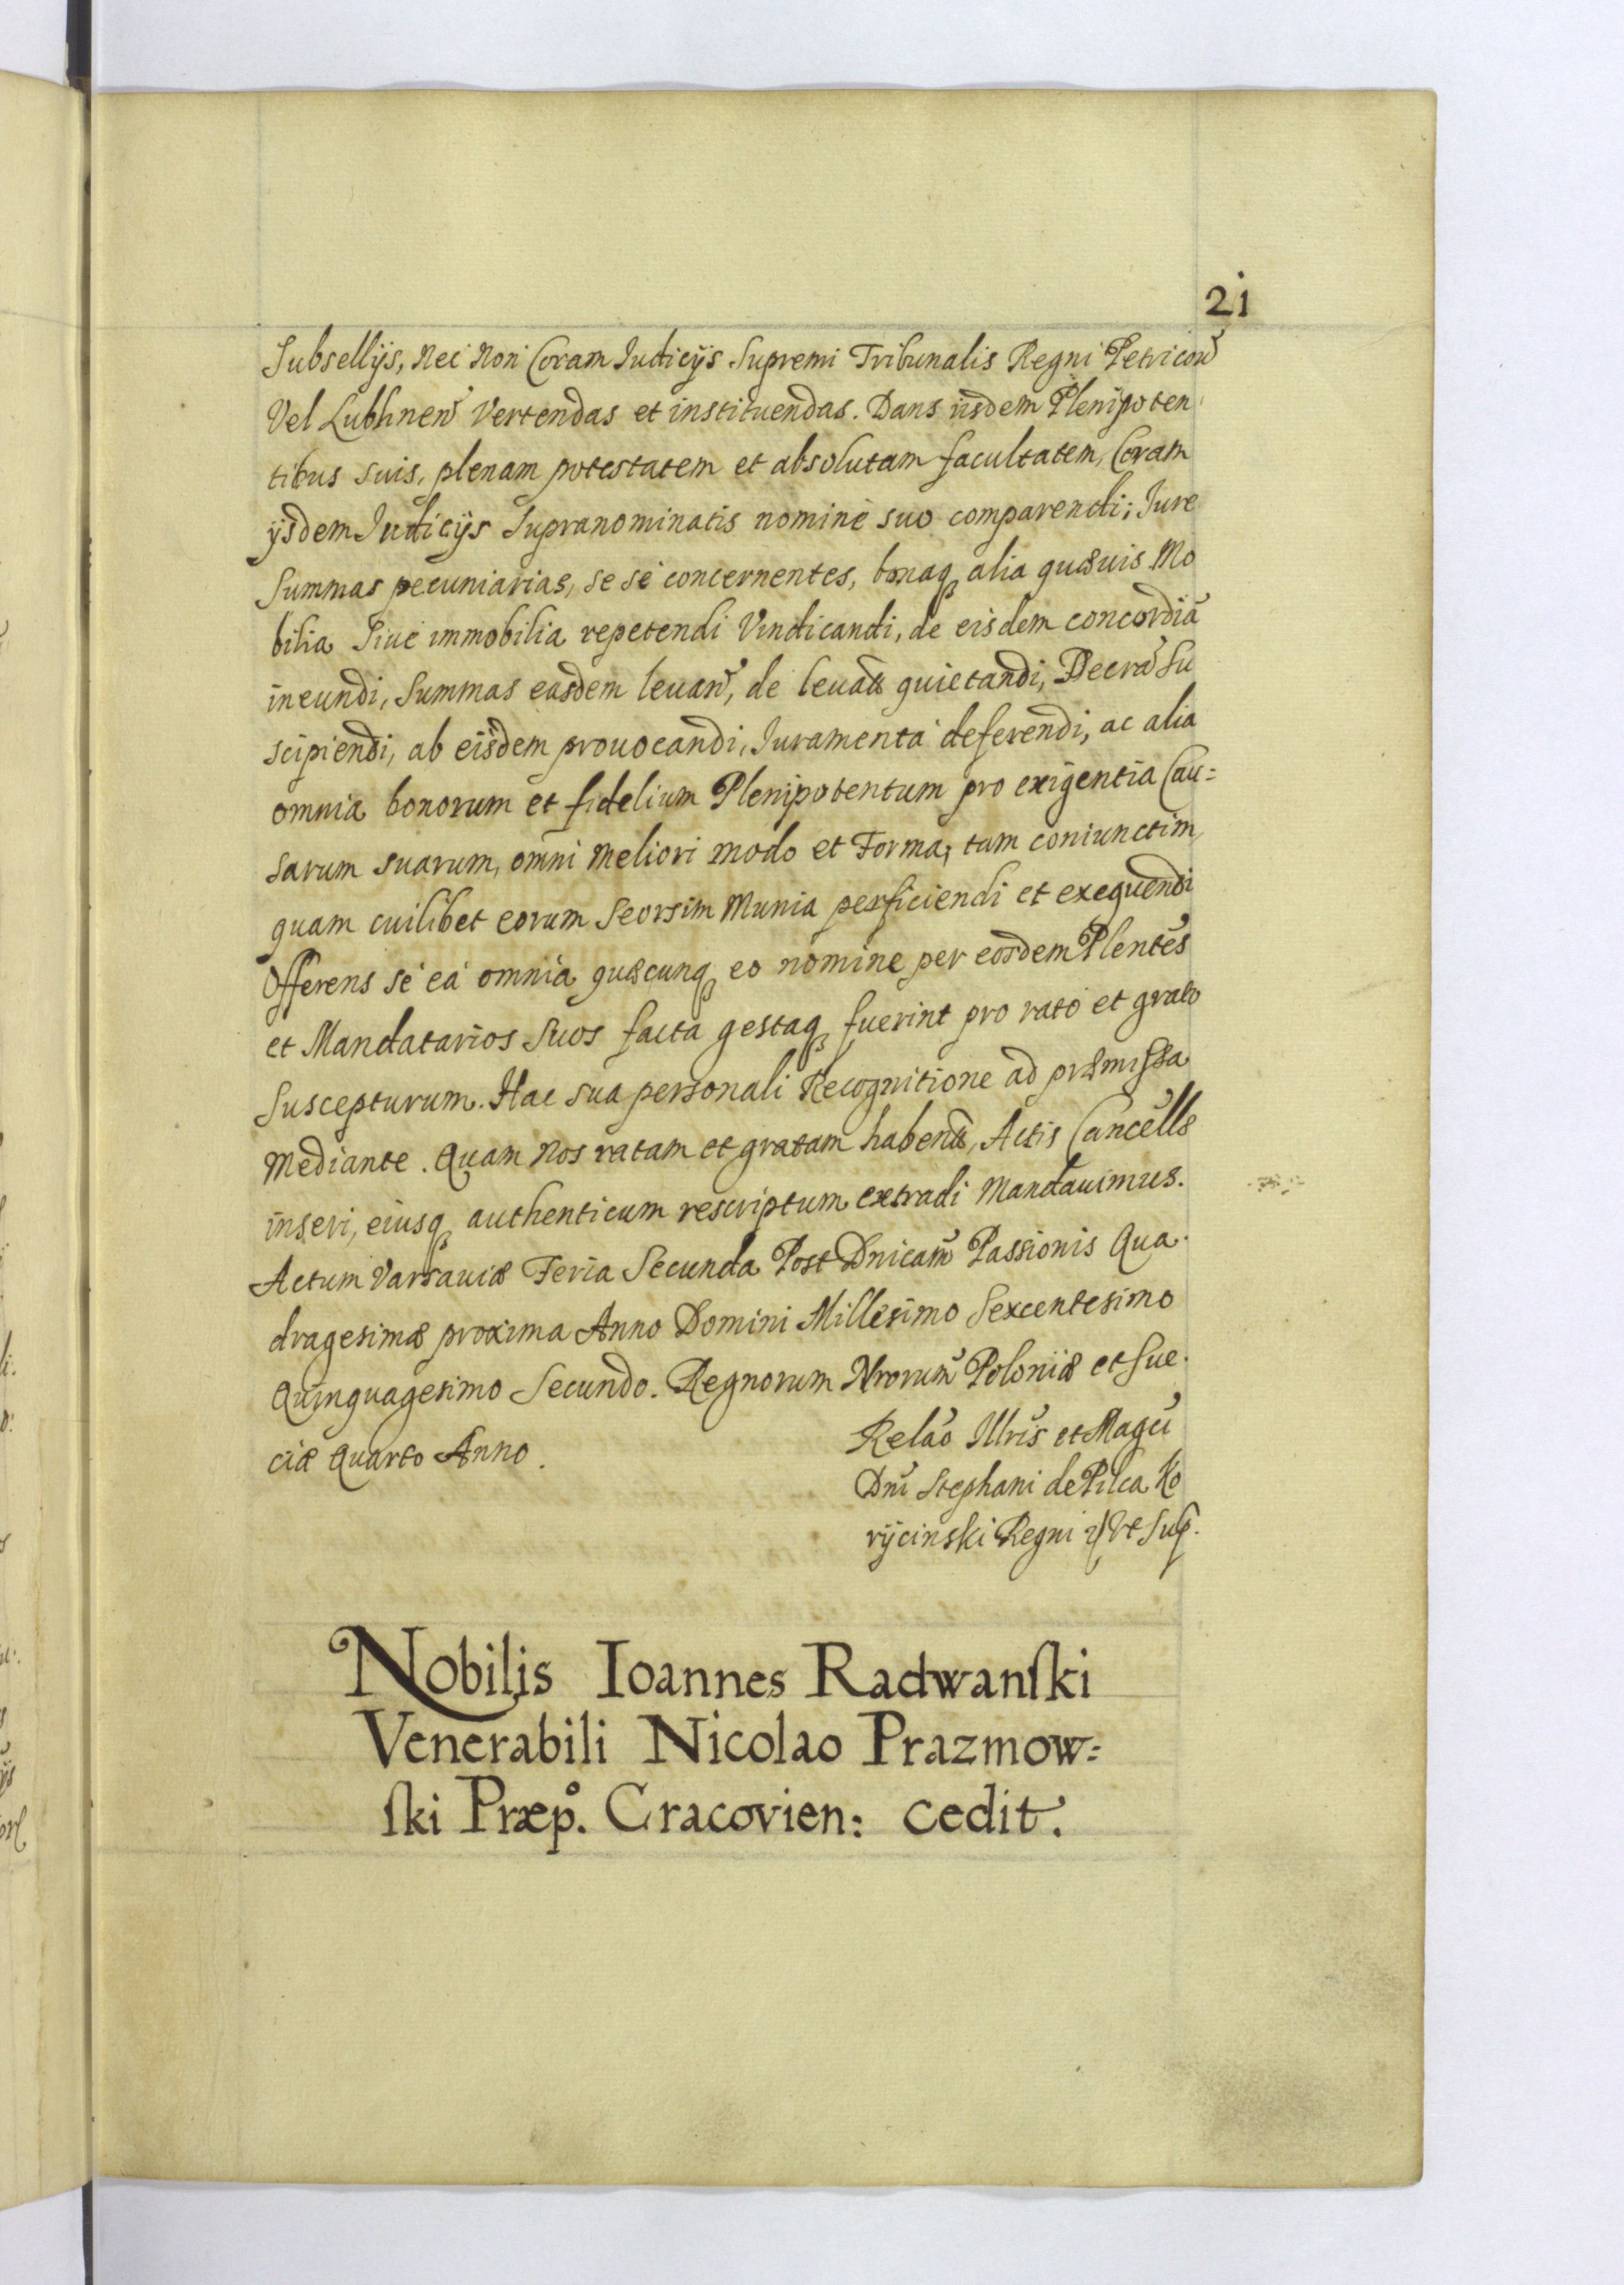 21
Subsellijs, nec non Coram Iudicijs Supremi Tribunalis Regni Petricoñ
Vel Lublineñ Vertendas et instituendas. Dans iisdem Plenipoten
tibus suis, plenam potestatem et absolutam facultatem, Coram
ijsdem Iudicijs Supranominatis nomine suo comparendi; Iure
Summas pecuniarias, se se concernentes, bonaq alia quævis Mo
bilia Siue immobilia repetendi Vindicandi, de eisdem concordiā
ineundi, Summas easdem leuañ, de leuatis quietandi, Decrã Su
scipiendi, ab eisdem prouocandi, Iuramenta deferendi, ac alia
omnia bonorum et fidelium Plenipotentum pro exigentia Cau=
sarum suarum, omni meliori modo et Forma, tam coniunctim,
quam cuilibet eorum Seorsim Munia perficiendi et exequendi
Offerens se ea omnia quæcunq eo nomine per eosdem Plentēs
et Mandatarios Suos facta gestaq fuerint pro rato et grato
Suscepturum. Hac sua personali Recognitione ad præmissa
Mediante. Quam nos ratam et gratam habentes, Actis Cancellæ
inseri, eiusq authenticum rescriptum extradi Mandauimus.
Actum Varsauiæ Feria Secunda Post Dnicam̃ Passionis Qua
dragesimæ proxima Anno Domini Millesimo Sexcentesimo
Quinquagesimo Secundo. Regnorum Nrorum̃ Poloniæ et Sue
ciæ Quarto Anno.
Relão Illris̃ et Magci̇̃
Dni̇̃ Stephani de Pilca Ko
rijcinski Regni ꝛ Vt Sup.
Nobilis Ioannes Radwanſki
Venerabili Nicolao Prazmow=
ſki Præpº. Cracovien: cedit.